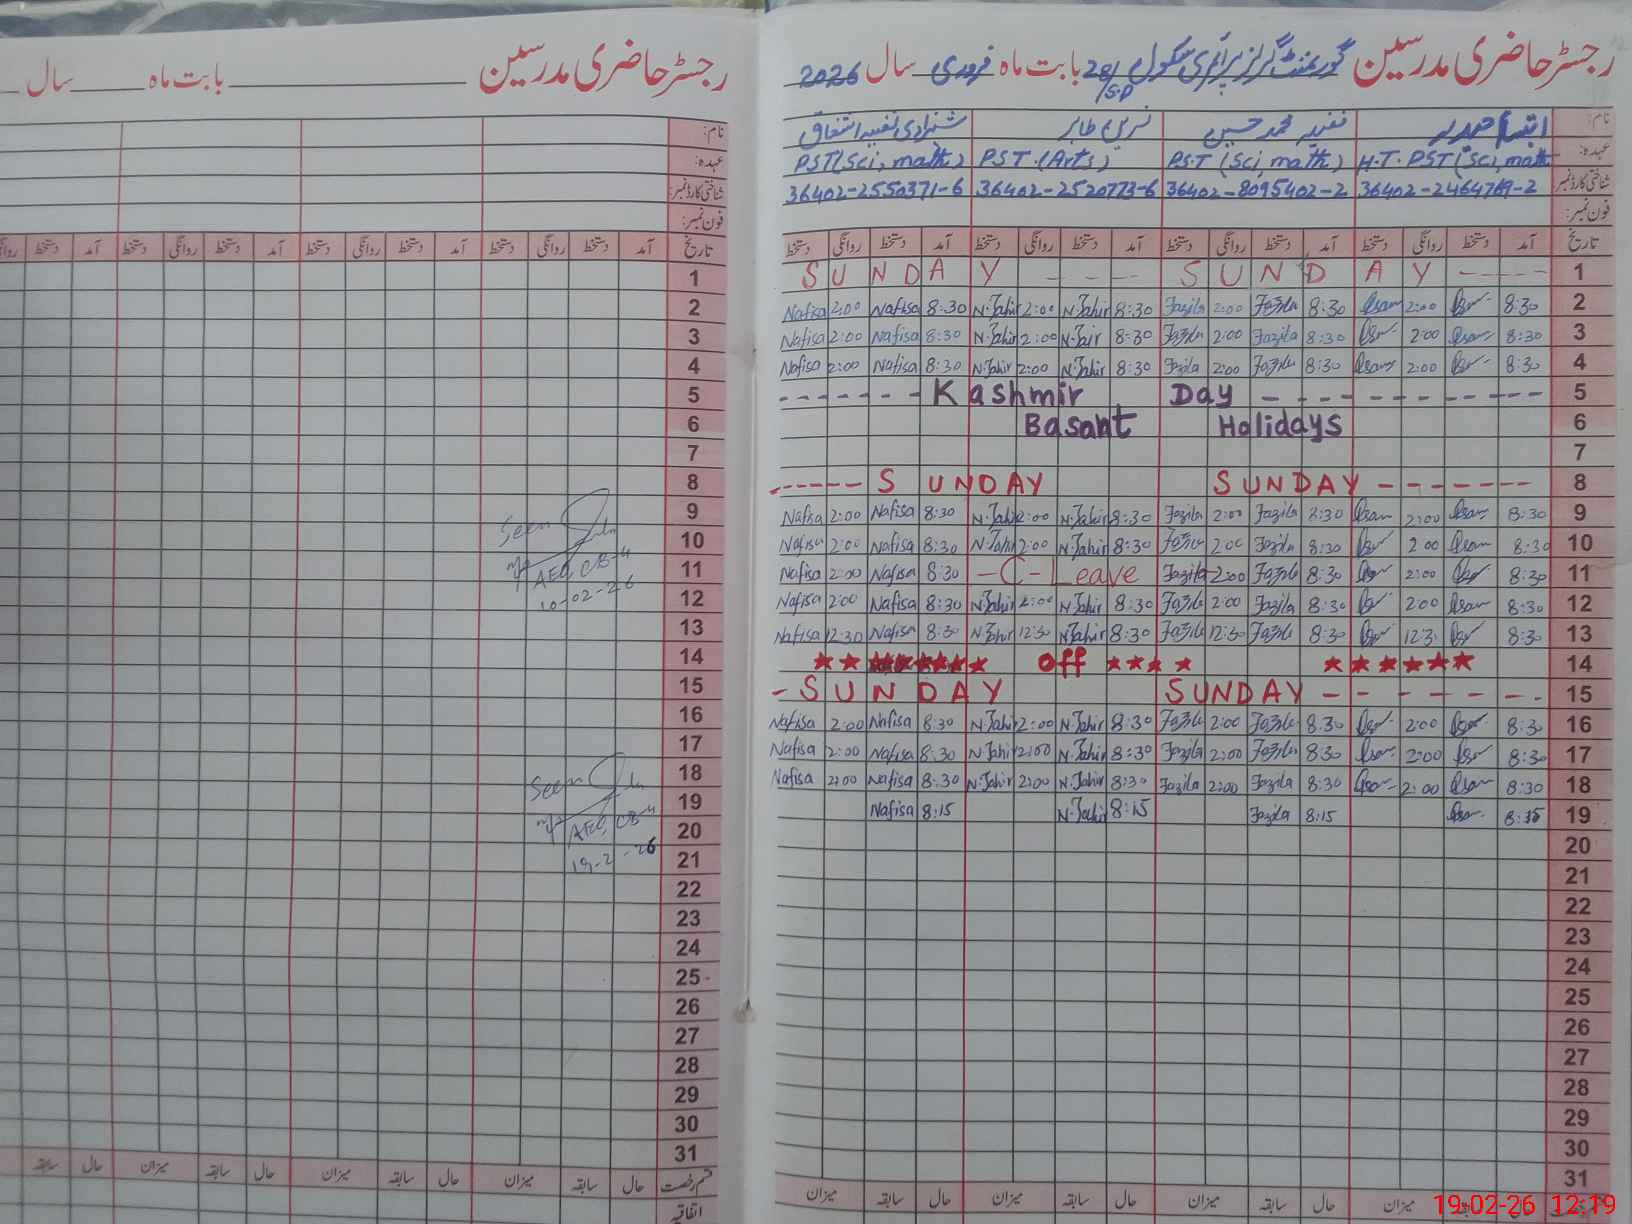 رجسٹر حاضری مدرسین گورنمنٹ گرلز پرائمری سکول 281/S.P بابت ماہ فروری سال 2026
نام: نسرین طاہر شہزادی نفیسہ اشفاق
عہدہ: H.T. PST (Sci, math P.S.T (Sci, math) PST (Arts) PST (Sci, math)
شناختی کارڈ نمبر: 36402-2464769-2 36402-8095402-2 36402-2520773-6 36402-2550371-6
فون نمبر:
تاریخ آمد دستخط روانگی دستخط آمد دستخط روانگی دستخط آمد دستخط روانگی دستخط آمد دستخط روانگی دستخط
S U N D A Y - - - - S U N D A Y - - - - 1
Nafisa 2:00 Nafisa 8:30 N.Tahir 2:00 N.Tahir 8:30 Fazila 2:00 Fazila 8:30 2:00 8:30 2
Nafisa 2:00 Nafisa 8:30 N.Tahir 2:00 N.Tair 8:30 Fazila 2:00 Fazila 8:30 2:00 8:30 3
Nafisa 2:00 Nafisa 8:30 N.Tahir 2:00 N.Tahir 8:30 Fazila 2:00 Fazila 8:30 2:00 8:30 4
- - - - - - Kashmir Day - - - - - - - - - - - 5
Basant Holidays 6
7
- - - - - SUNDAY SUNDAY - - - - - - - 8
Nafisa 2:00 Nafisa 8:30 N.Tahir 2:00 N.Tahir 8:30 Fazila 2:00 Fazila 8:30 2:00 8:30 9
Nafisa 2:00 Nafisa 8:30 N.Tahir 2:00 N.Tahir 8:30 Fazila 2:00 Fazila 8:30 2:00 8:30 10
Nafisa 2:00 Nafisa 8:30 - C - Leave Fazila 2:00 Fazila 8:30 2:00 8:30 11
Nafisa 2:00 Nafisa 8:30 N.Tahir 2:00 N.Tahir 8:30 Fazila 2:00 Fazila 8:30 2:00 8:30 12
Nafisa 12:30 Nafisa 8:30 N.Tahir 12:30 N.Tahir 8:30 Fazila 12:30 Fazila 8:30 12:3 8:30 13
off 14
- SUNDAY SUNDAY - - - - - - 15
Nafisa 2:00 Nafisa 8:30 N.Tahir 2:00 N.Tahir 8:30 Fazila 2:00 Fazila 8:30 2:00 8:30 16
Nafisa 2:00 Nafisa 8:30 N.Tahir 2:00 N.Tahir 8:30 Fazila 2:00 Fazila 8:30 2:00 8:30 17
Nafisa 2:00 Nafisa 8:30 N.Tahir 2:00 N.Tahir 8:30 Fazila 2:00 Fazila 8:30 2:00 8:30 18
Nafisa 8:15 N.Tahir 8:15 Fazila 8:15 8:15 19
20
21
22
23
24
25
26
27
28
29
30
31
حال سابقہ میزان حال سابقہ میزان حال سابقہ میزان
19-02-26 12:19
رجسٹر حاضری مدرسین بابت ماہ سال
نام:
عہدہ:
شناختی کارڈ نمبر:
فون نمبر:
تاریخ آمد دستخط روانگی دستخط آمد دستخط روانگی دستخط آمد دستخط روانگی دستخط آمد دستخط روانگی
1
2
3
4
5
6
7
8
9
Seen
10
11
AEO CB-4
12
10-02-26
13
14
15
16
17
18
Seen
19
20
AEO, CB-4
21
19-2-26
22
23
24
25
26
27
28
29
30
31
قسم رخصت حال سابقہ میزان حال سابقہ میزان حال سابقہ میزان حال سابقہ
اتفاقیہ